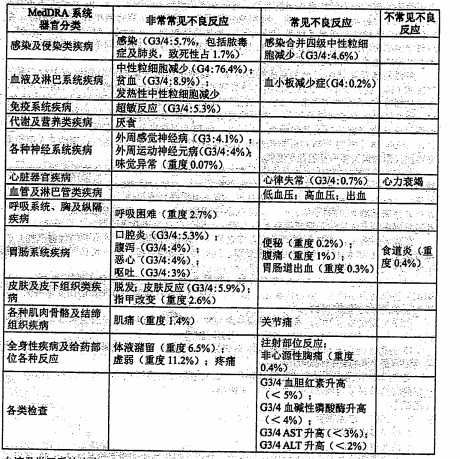 MedDRA 系统器官分类 非常常见不良反应 常见不良反应 不常见不良反应
感染及侵染类疾病 感染（G3/4:5.7%，包括脓毒症及肺炎，致死性占 1.7%） 感染合并四级中性粒细胞减少（G3/4:4.6%）
血液及淋巴系统疾病 中性粒细胞减少（G4:76.4%）；贫血（G3/4:8.9%）；发热性中性粒细胞减少 血小板减少症（G4:0.2%）
免疫系统疾病 超敏反应（G3/4:5.3%）
代谢及营养类疾病 厌食
各种神经系统疾病 外周感觉神经病（G3:4.1%）；外周运动神经元病（G3/4:4%）；味觉异常（重度 0.07%）
心脏器官疾病 心律失常（G3/4:0.7%） 心力衰竭
血管及淋巴管类疾病 低血压；高血压；出血
呼吸系统、胸及纵隔疾病 呼吸困难（重度 2.7%）
胃肠系统疾病 口腔炎（G3/4:5.3%）；腹泻（G3/4:4%）；恶心（G3/4:4%）；呕吐（G3/4:3%） 便秘（重度 0.2%）；腹痛（重度 1%）；胃肠道出血（重度 0.3%） 食道炎（重度 0.4%）
皮肤及皮下组织类疾病 脱发；皮肤反应（G3/4:5.9%）；指甲改变（重度 2.6%）
各种肌肉骨骼及结缔组织疾病 肌痛（重度 1.4%） 关节痛
全身性疾病及给药部位各种反应 体液潴留（重度 6.5%）；虚弱（重度 11.2%）；疼痛 注射部位反应；非心源性胸痛（重度 0.4%）
各类检查 G3/4 血胆红素升高（＜5%）；G3/4 血碱性磷酸酶升高（＜4%）；G3/4 AST 升高（＜3%）；G3/4 ALT 升高（＜2%）